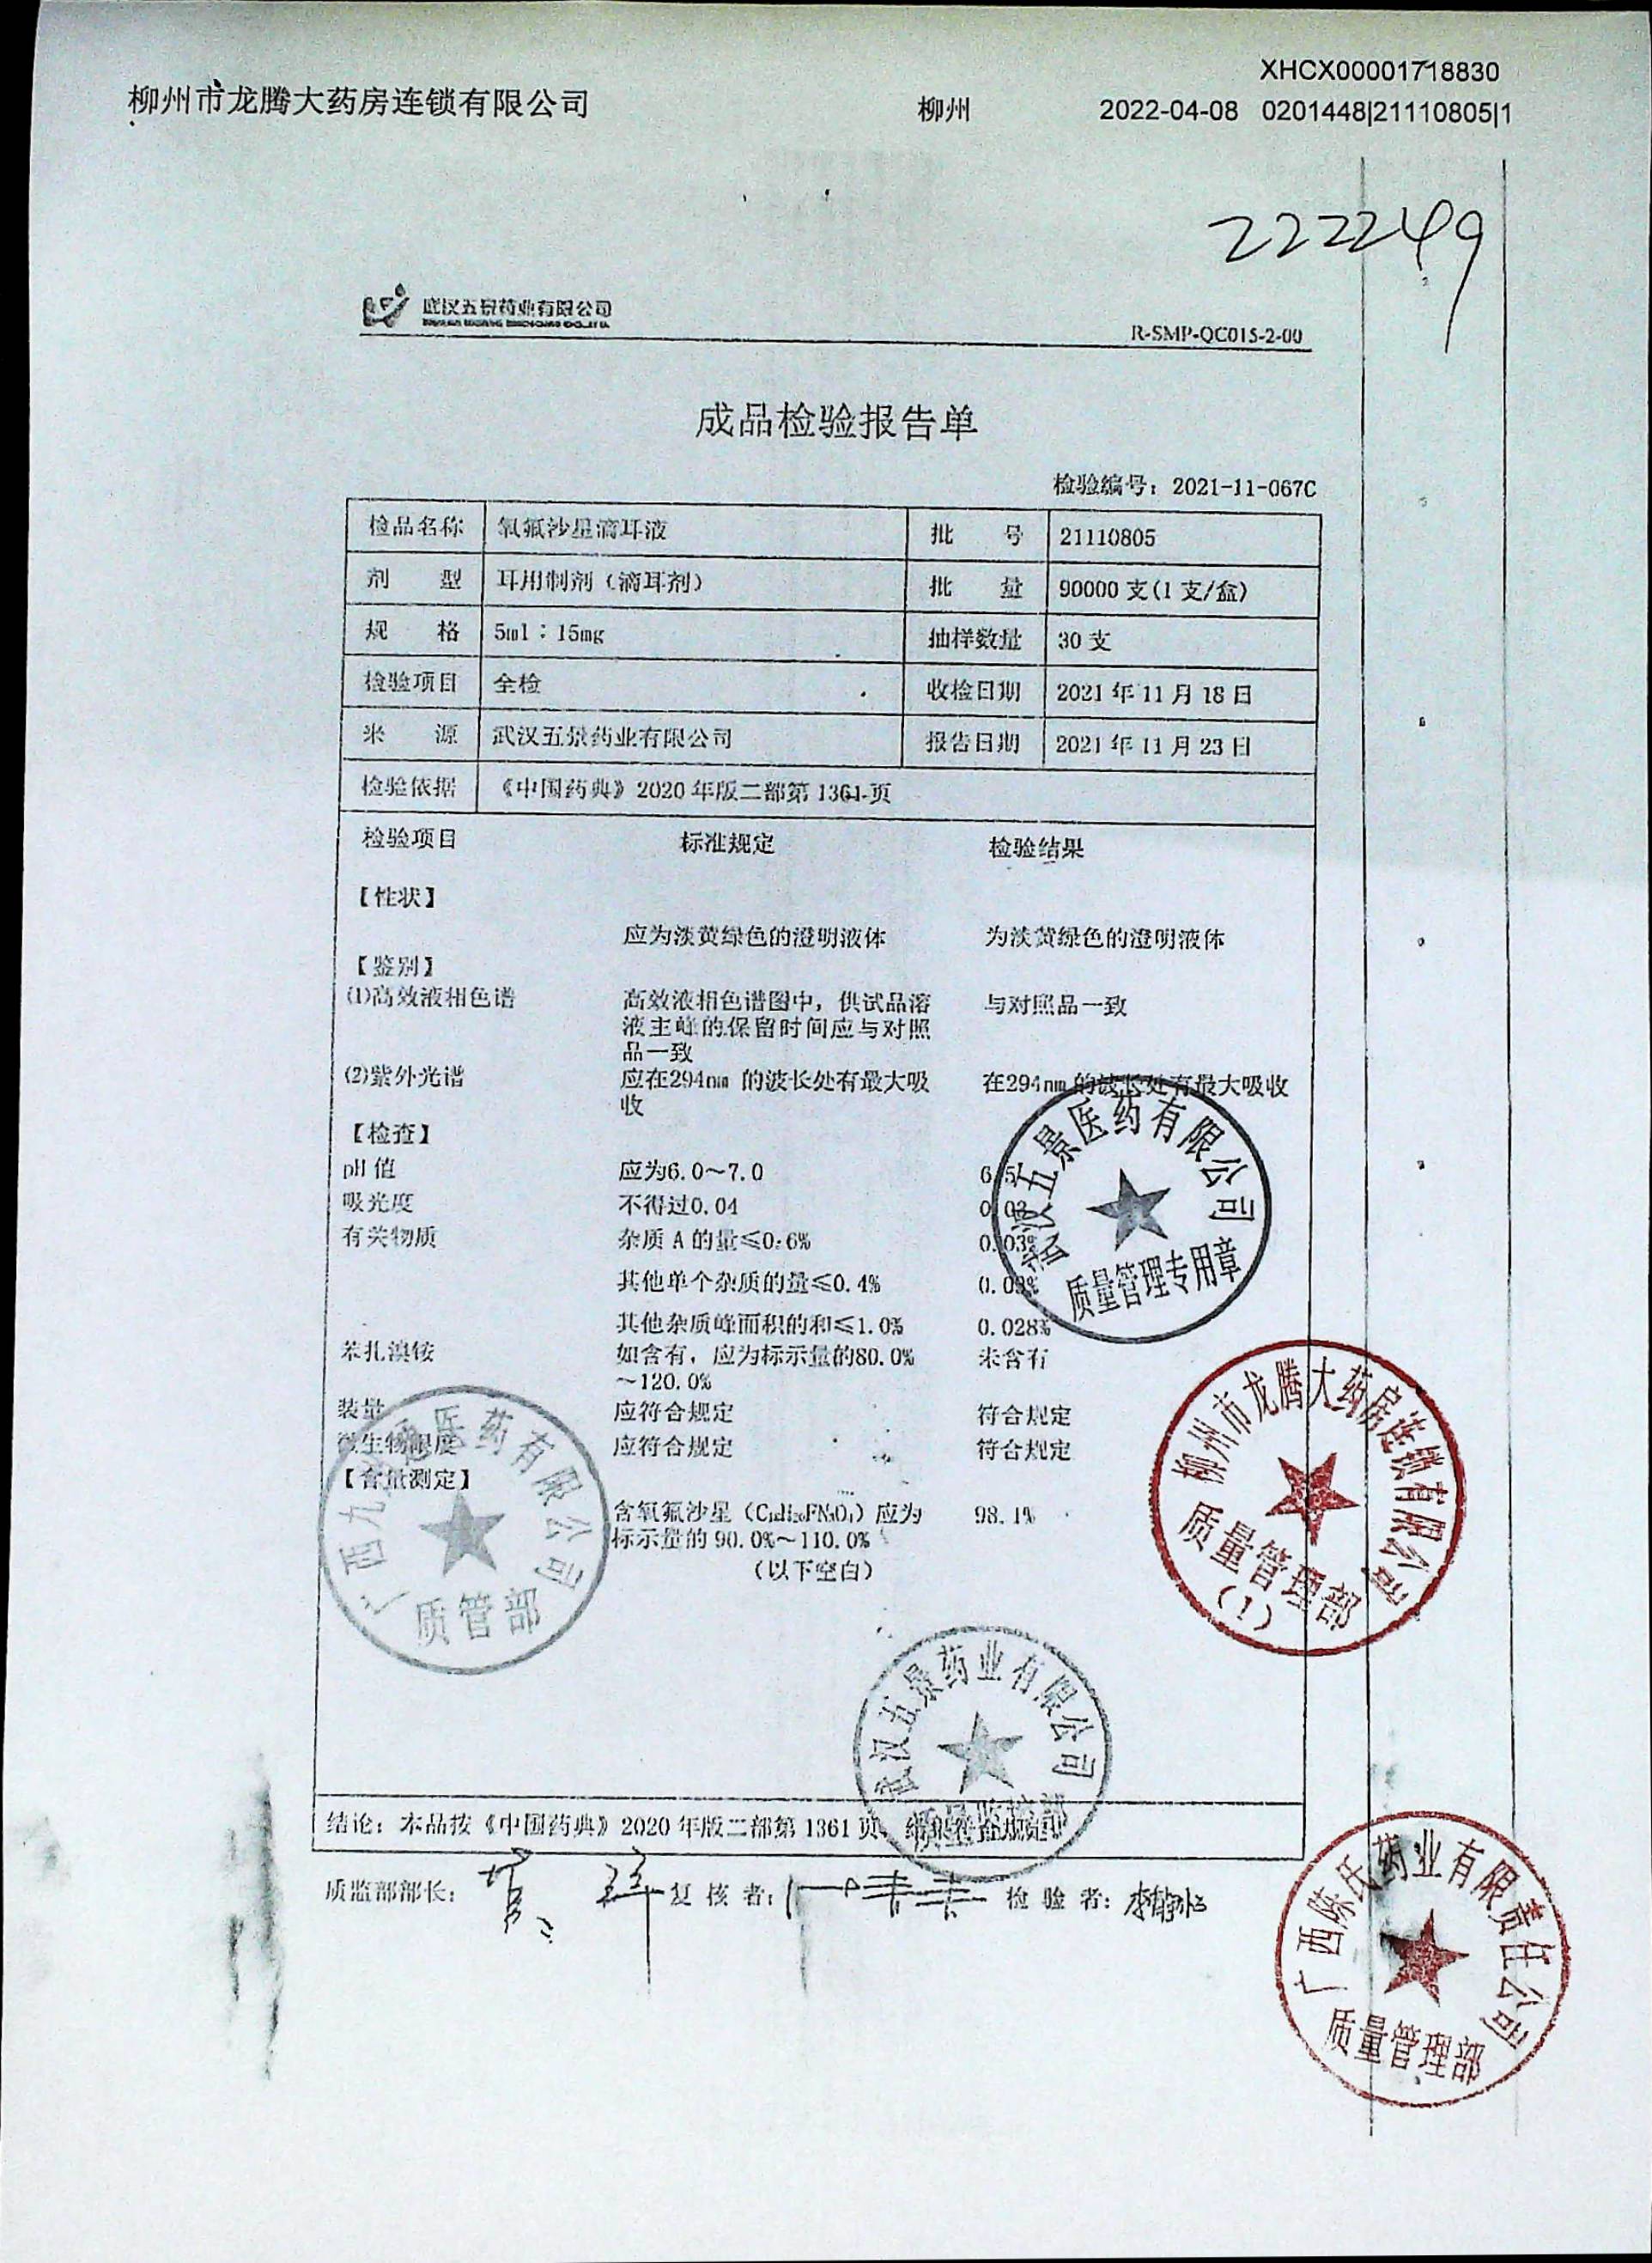 XHCX00001718830
柳州市龙腾大药房连锁有限公司 柳州 2022-04-08 0201448|21110805|1
222249
武汉五景药业有限公司
R-SMP-QC015-2-00
成品检验报告单
检验编号：2021-11-067C
检品名称 氧氟沙星滴耳液 批 号 21110805
剂 型 耳用制剂（滴耳剂） 批 量 90000 支(1 支/盒)
规 格 5ml：15mg 抽样数量 30 支
检验项目 全检 收检日期 2021 年 11 月 18 日
来 源 武汉五景药业有限公司 报告日期 2021 年 11 月 23 日
检验依据 《中国药典》2020 年版二部第 1361 页
检验项目 标准规定 检验结果
【性状】
应为淡黄绿色的澄明液体 为淡黄绿色的澄明液体
【鉴别】
(1)高效液相色谱 高效液相色谱图中，供试品溶 与对照品一致
液主峰的保留时间应与对照
品一致
(2)紫外光谱 应在294nm 的波长处有最大吸 在294nm 的波长处有最大吸收
收
【检查】
pH 值 应为6.0～7.0 6.5
吸光度 不得过0.04
有关物质 杂质 A 的量≤0.6% 0.03%
其他单个杂质的量≤0.4%
其他杂质峰面积的和≤1.0% 0.028%
苯扎溴铵 如含有，应为标示量的80.0% 未含有
～120.0%
装量 应符合规定 符合规定
微生物限度 应符合规定 符合规定
【含量测定】
含氧氟沙星（C₁₈H₂₀FN₃O₄）应为 98.1%
标示量的 90.0%～110.0%
（以下空白）
武汉五景医药有限公司
质量管理专用章
柳州市龙腾大药房连锁有限公司
质量管理部
(1)
医药有限公司
质管部
武汉五景药业有限公司
质量监控部
结论：本品按《中国药典》2020 年版二部第 1361 页
质监部部长： 复 核 者： 检 验 者：
广西陈氏药业有限责任公司
质量管理部